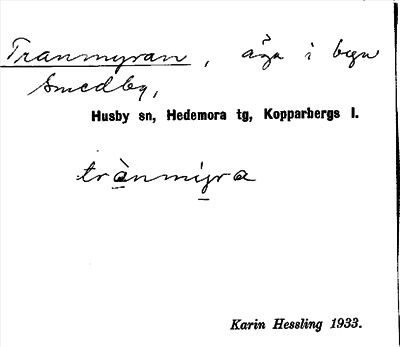 Tranmyran, äga i byn
Smedby,
Husby sn, Hedemora tg, Kopparbergs l.
trànmyra
Karin Hessling 1933.